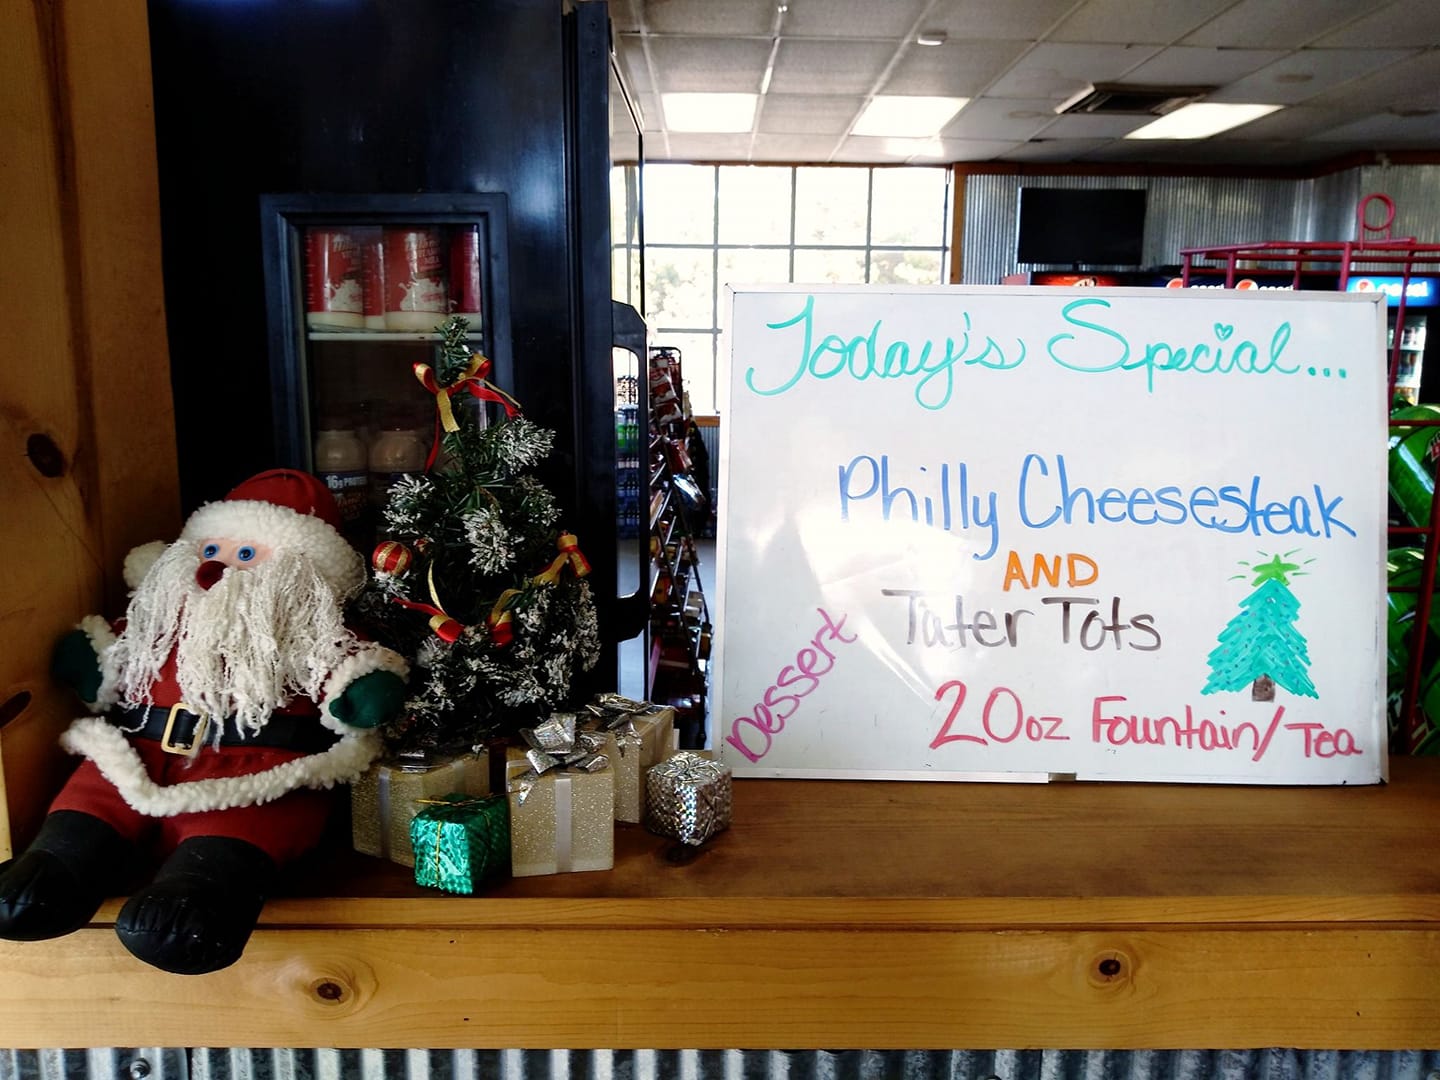 Today's Special...
Philly Cheesesteak
AND
Tater Tots
Dessert
20oz Fountain/Tea
16g PROTEIN
pepsi